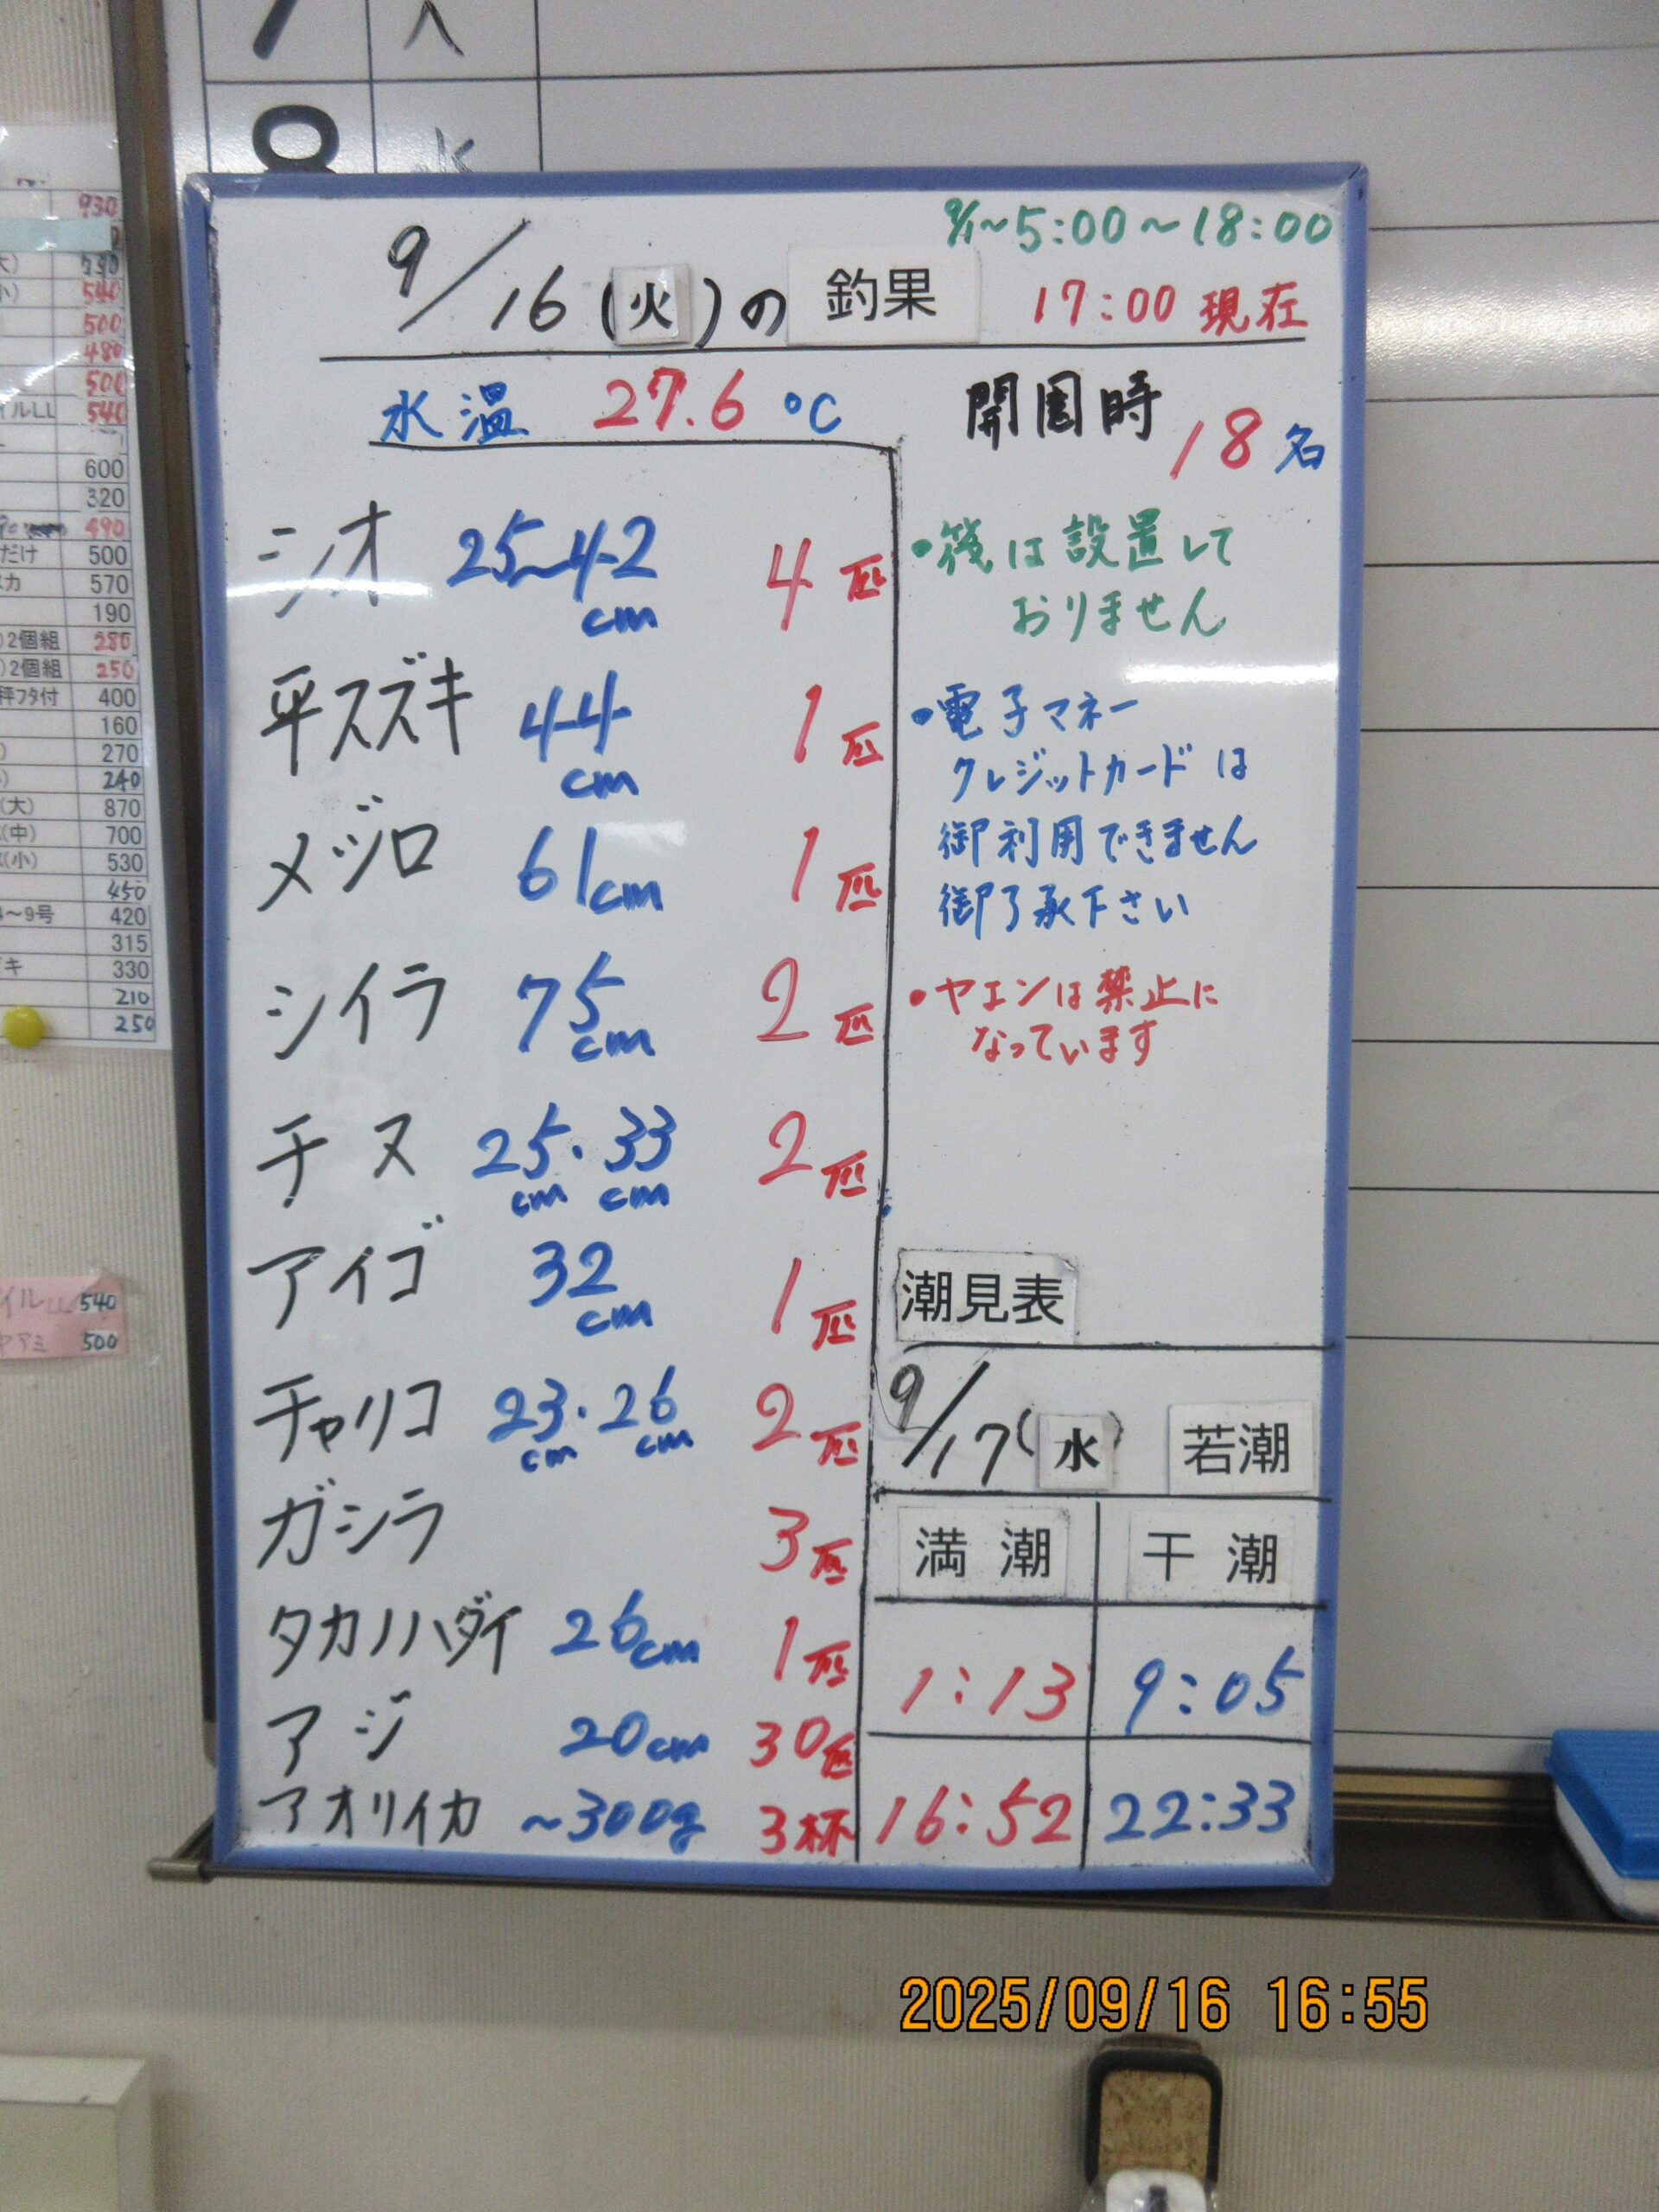 930
540
500
480
500
イルLL 540
600
320
490
だけ 500
570
190
2個組 280
2個組 250
秤フタ付 400
160
270
240
(大) 870
(中) 700
(小) 530
450
～9号 420
315
キ 330
210
250
イルLL 540
500
水
9/1～5:00～18:00
9/16(火)の 釣果 17:00 現在
水温 27.6 ℃ 開園時 18名
シオ 25～42cm 4匹
平スズキ 44cm 1匹
メジロ 61cm 1匹
シイラ 75cm 2匹
チヌ 25cm・33cm 2匹
アイゴ 32cm 1匹
チャリコ 23cm・26cm 2匹
ガシラ 3匹
タカノハダイ 26cm 1匹
アジ 20cm 30匹
アオリイカ ～300g 3杯
・筏は設置して
おりません
・電子マネー
クレジットカードは
御利用できません
御了承下さい
・ヤエンは禁止に
なっています
潮見表
9/17(水) 若潮
満潮 干潮
1:13 9:05
16:52 22:33
2025/09/16 16:55